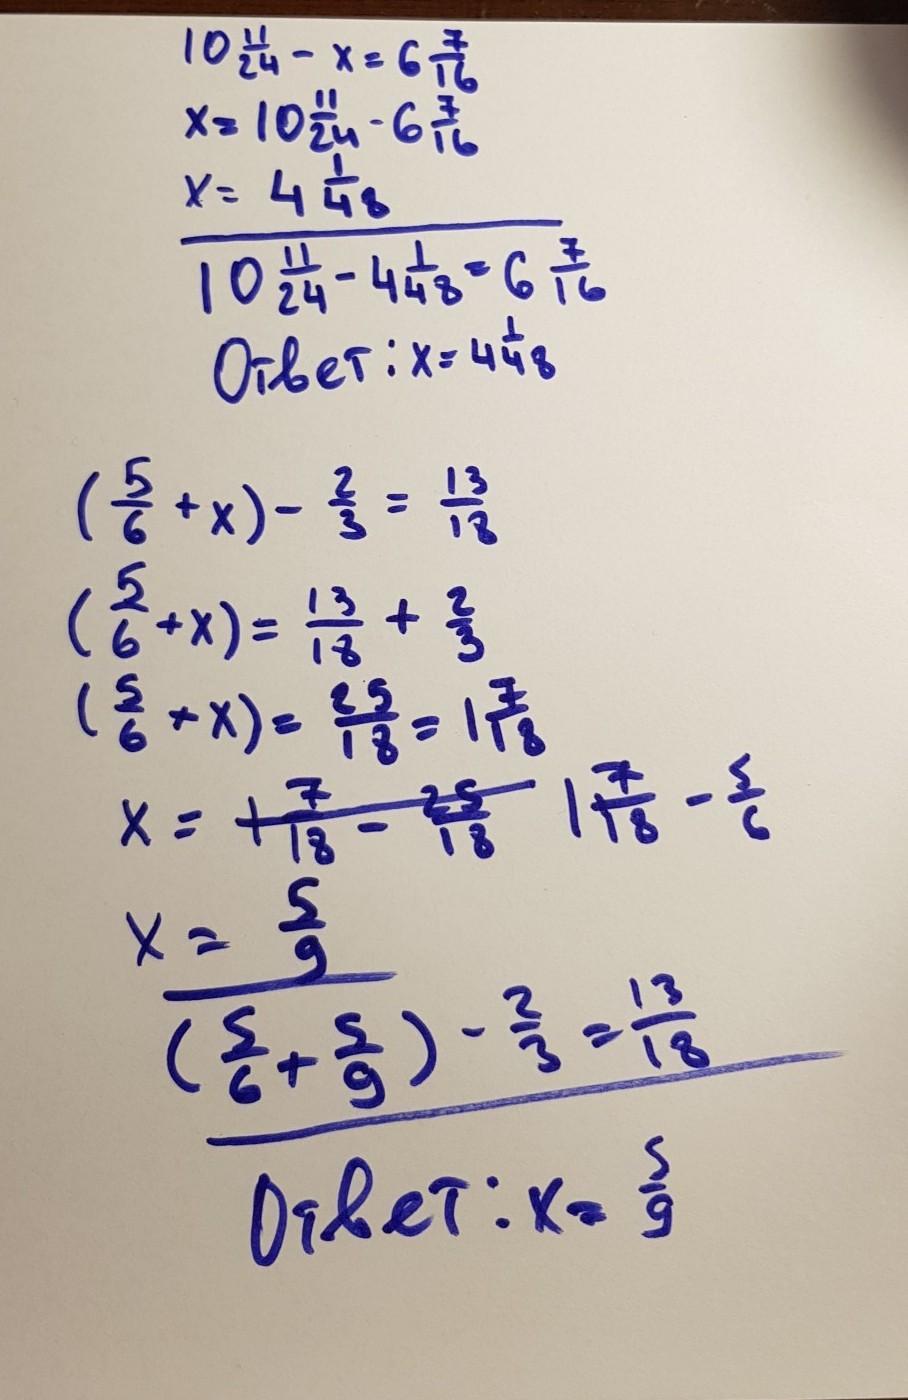 10 11/24 - x = 6 7/16
x = 10 11/24 - 6 7/16
x = 4 1/48
10 11/24 - 4 1/48 = 6 7/16
Ответ: x = 4 1/48
(5/6 + x) - 2/3 = 13/18
(5/6 + x) = 13/18 + 2/3
(5/6 + x) = 25/18 = 1 7/18
x = 1 7/18 - 25/18 1 7/18 - 5/6
x = 5/9
(5/6 + 5/9) - 2/3 = 13/18
Ответ: x = 5/9